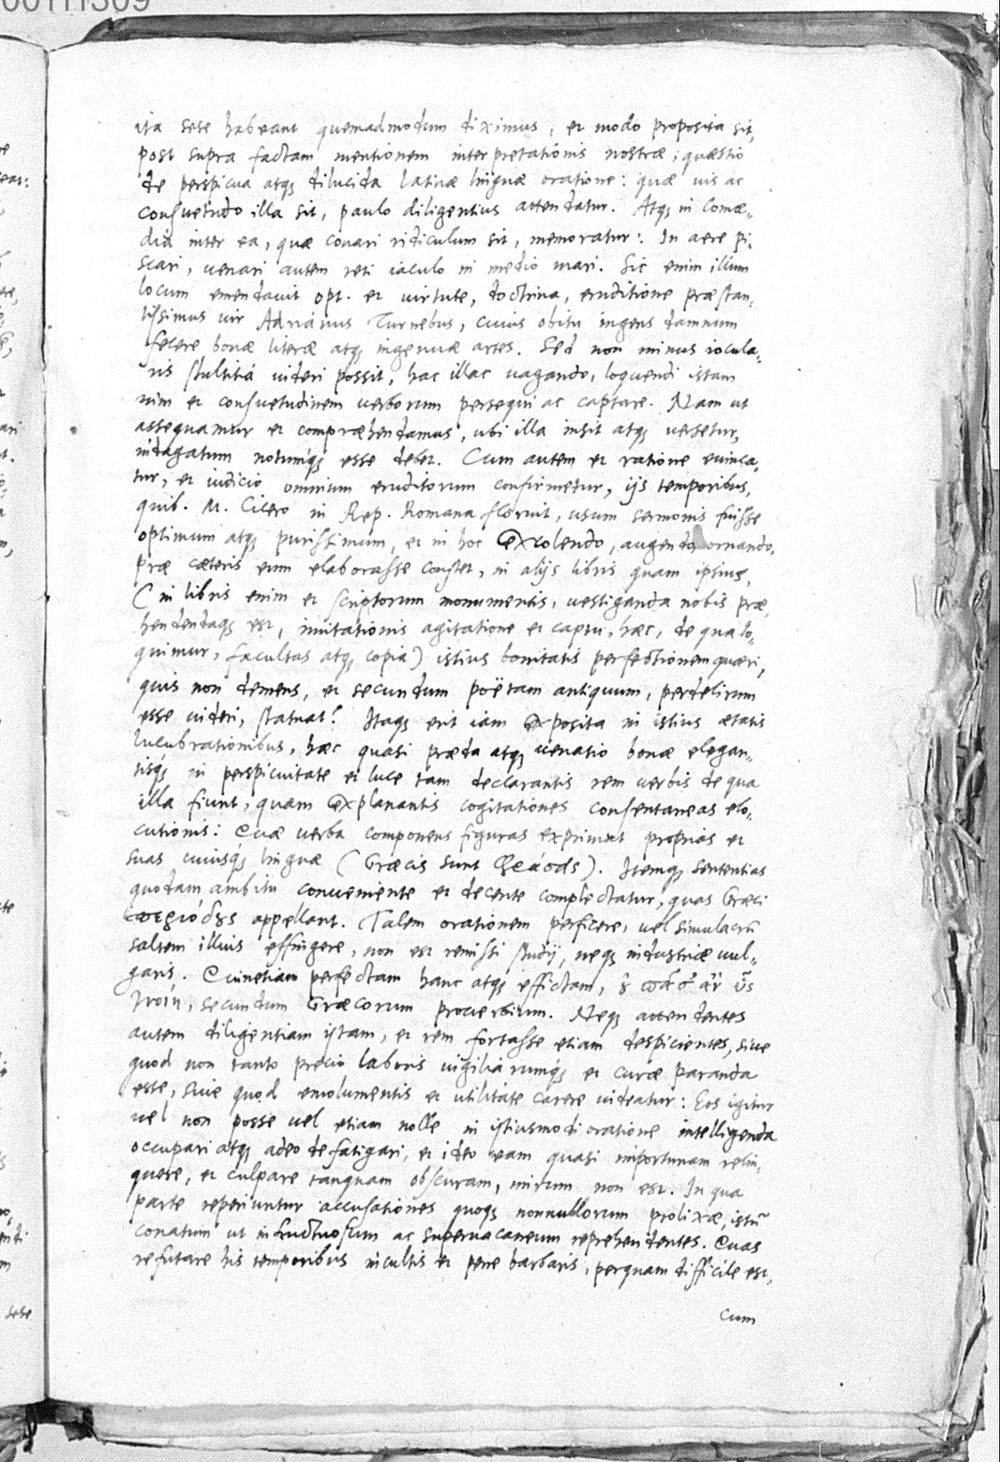 ita sese habeant quemadmodum diximus, et modo proposita sit,
post supra factam mentionem interpretationis nostræ, quæstio
de perspicua atq; dilucida latinæ linguæ oratione: quæ uis ac
consuetudo illa sit, paulo diligentius attendatur. Atq; in Comœ-
dia inter ea, quæ conari ridiculum sit, memoratur: In aere pi-
scari, uenari autem reti iaculo in medio mari. Sic enim illum
locum emendauit opt. et uirtute, doctrina, eruditione præstan-
tissimus uir Adrianus Turnebus, cuius obitu ingens damnum
fecere bonæ literæ atq; ingenuæ artes. Sed non minus iocula-
ris stultitia uideri possit, hac illac uagando, loquendi istam
uim et consuetudinem uerborum persequi ac captare. Nam ut
assequamur et compræhendamus, ubi illa insit atq; uersetur,
indagatum notumq; esse debet. Cum autem et ratione euinca-
tur, et iudicio omnium eruditorum confirmetur, ijs temporibus,
quib. M. Cicero in Rep. Romana floruit, usum sermonis fuisse
optimum atq; purissimum, et in hoc excolendo, augendo, ornando,
præ cæteris eum elaborasse constet, in alijs libris quam ipsius,
(in libris enim et scriptorum monumentis, uestiganda nobis præ-
hendendaq; est, imitationis agitatione et captu, hæc, de qua lo-
quimur, facultas atq; copia) istius bonitatis perfectionem quæri,
quis non demens, et secundum poëtam antiquum, perdelirum
esse uideri, statuat? Itaq; erit iam exposita in istius ætatis
lucubrationibus, hæc quasi præda atq; uenatio bonæ elegan-
tisq; in perspicuitate et luce tam declarantis rem uerbis de qua
illa fiunt, quam explanantis cogitationes consentaneas elo-
cutionis: Quæ uerba componens figuras exprimat proprias et
suas cuiusq; linguæ (Græcis sunt φράσδς). Itemq; sententias
quodam ambitu conueniente et decente complectatur, quas Græci
περιόδους appellant. Talem orationem perficere, uel simulacrū
saltem illius effingere, non est remissi studij, neq; industriæ uul-
garis. Quinetiam perfectam hanc atq; effictam,
secundum Græcorum prouerbium. Neq; attendentes
autem diligentiam istam, et rem fortasse etiam despicientes, siue
quod non tanto precio laboris uigiliarumq; et curæ paranda
esse, siue quod emolumentis et utilitate carere uideatur: Eos igitur
uel non posse uel etiam nolle in istiusmodi oratione intelligenda
occupari atq; adeo defatigari, et ideo eam quasi importunam relin-
quere, et culpare tanquam obscuram, mirum non est. In qua
parte reperiuntur accusationes quoq; nonnullorum prolixæ, istū
conatum ut infructuosum ac superuacaneum reprehendentes. Quas
refutare his temporibus incultis et pene barbaris, perquam difficile est,
cum